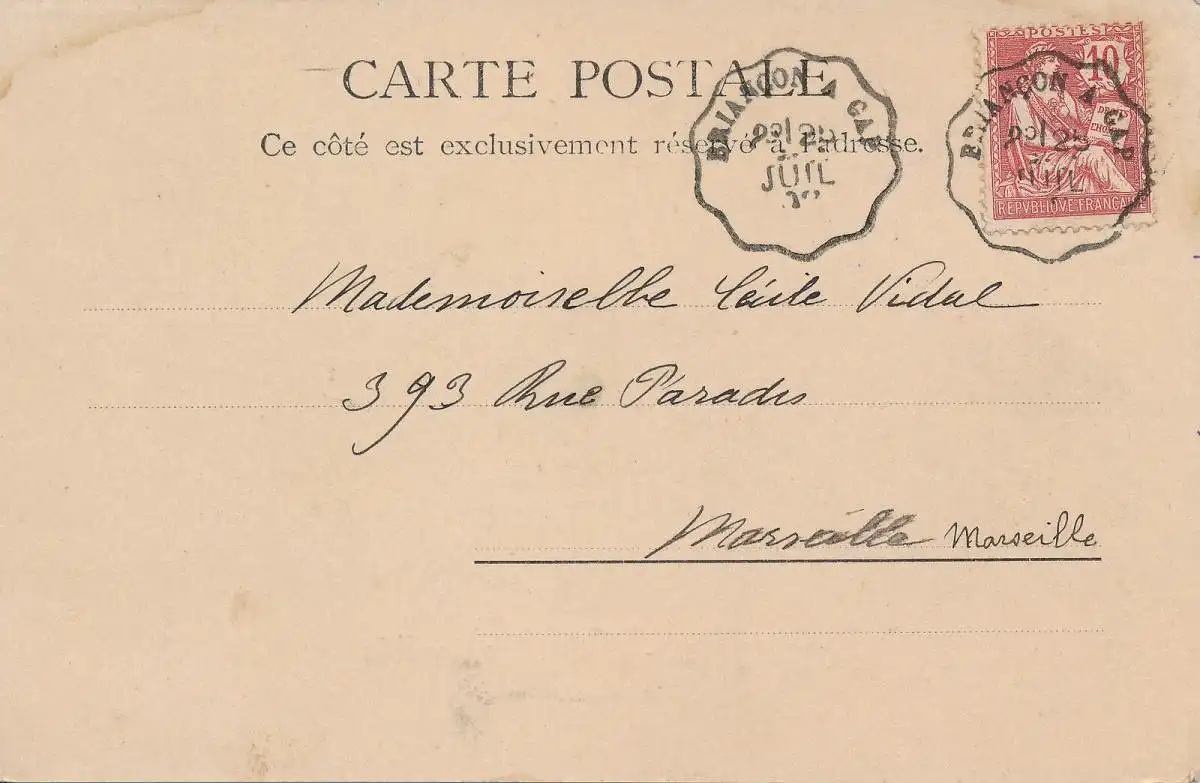 CARTE POSTALE
Ce côté est exclusivement réservé à l'adresse.
BRIANÇON A GAP
25
JUIL
POSTES
10
REPVBLIQVE FRANÇAISE
BRIANÇON A GAP
25
JUIL
Mademoiselle Cécile Vidal
393 Rue Paradis
Marseille Marseille